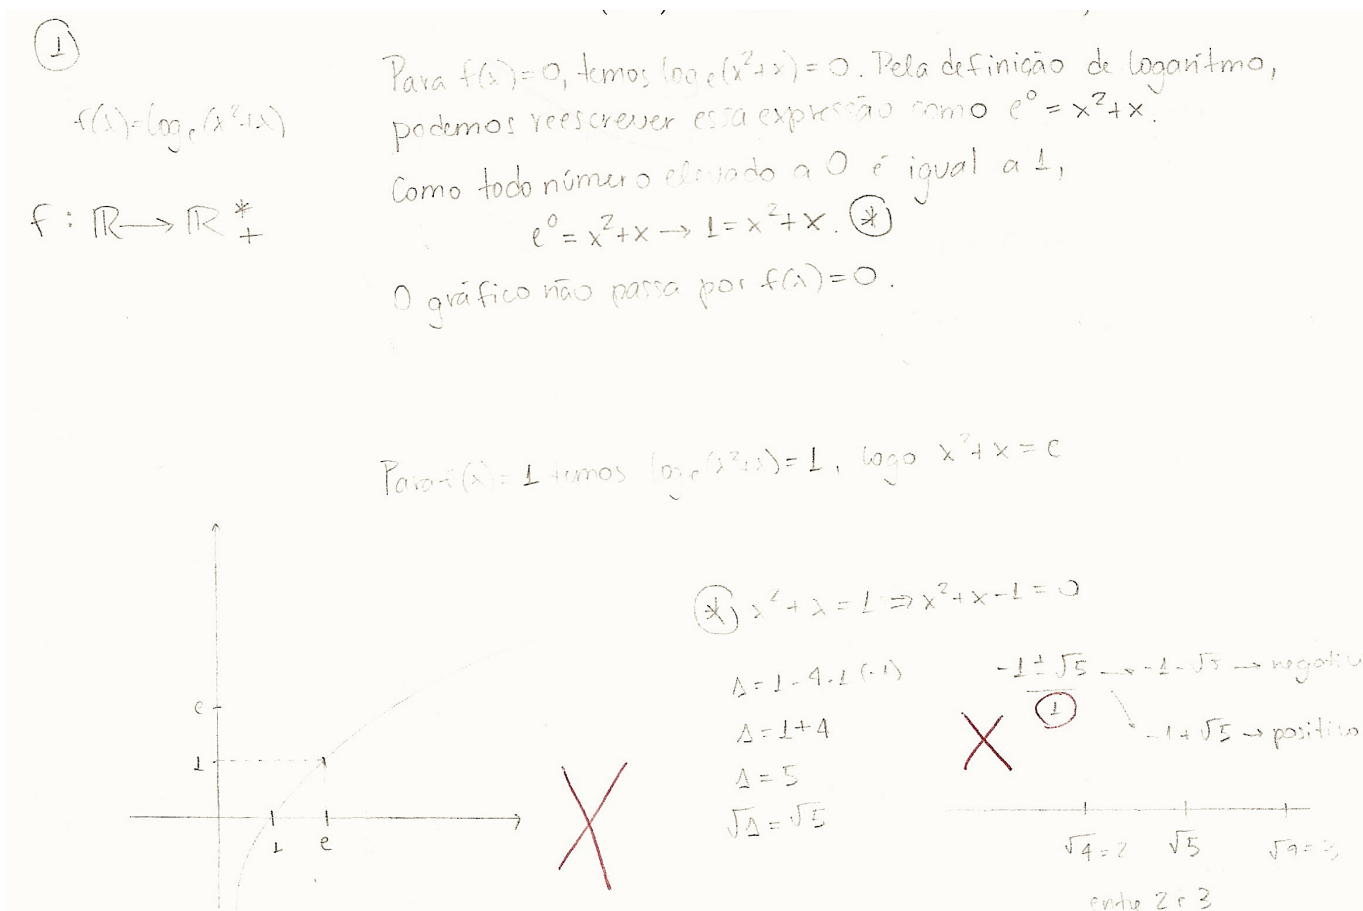 1
f(x)=log_e(x²+x)
f : ℝ → ℝ*₊
Para f(x)=0, temos log_e(x²+x)=0. Pela definição de logarítmo,
podemos reescrever essa expressão como e⁰ = x²+x.
Como todo número elevado a 0 é igual a 1,
e⁰ = x²+x → 1 = x²+x. (*)
O gráfico não passa por f(x)=0.
Para f(x)=1 temos log_e(x²+x)=1, logo x²+x = e
e
1
1 e
(*) x²+x=1 ⇒ x²+x-1=0
Δ=1-4·1(-1)
Δ=1+4
Δ=5
√Δ=√5
-1±√5 → -1-√5 → negativo
1
-1+√5 → positivo
√4=2 √5 √9=3
entre 2 e 3